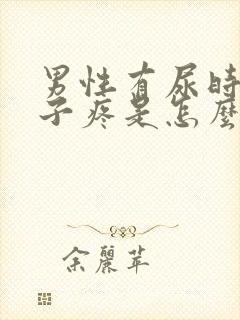 男性有尿时
子疼是怎麼
余麗苹